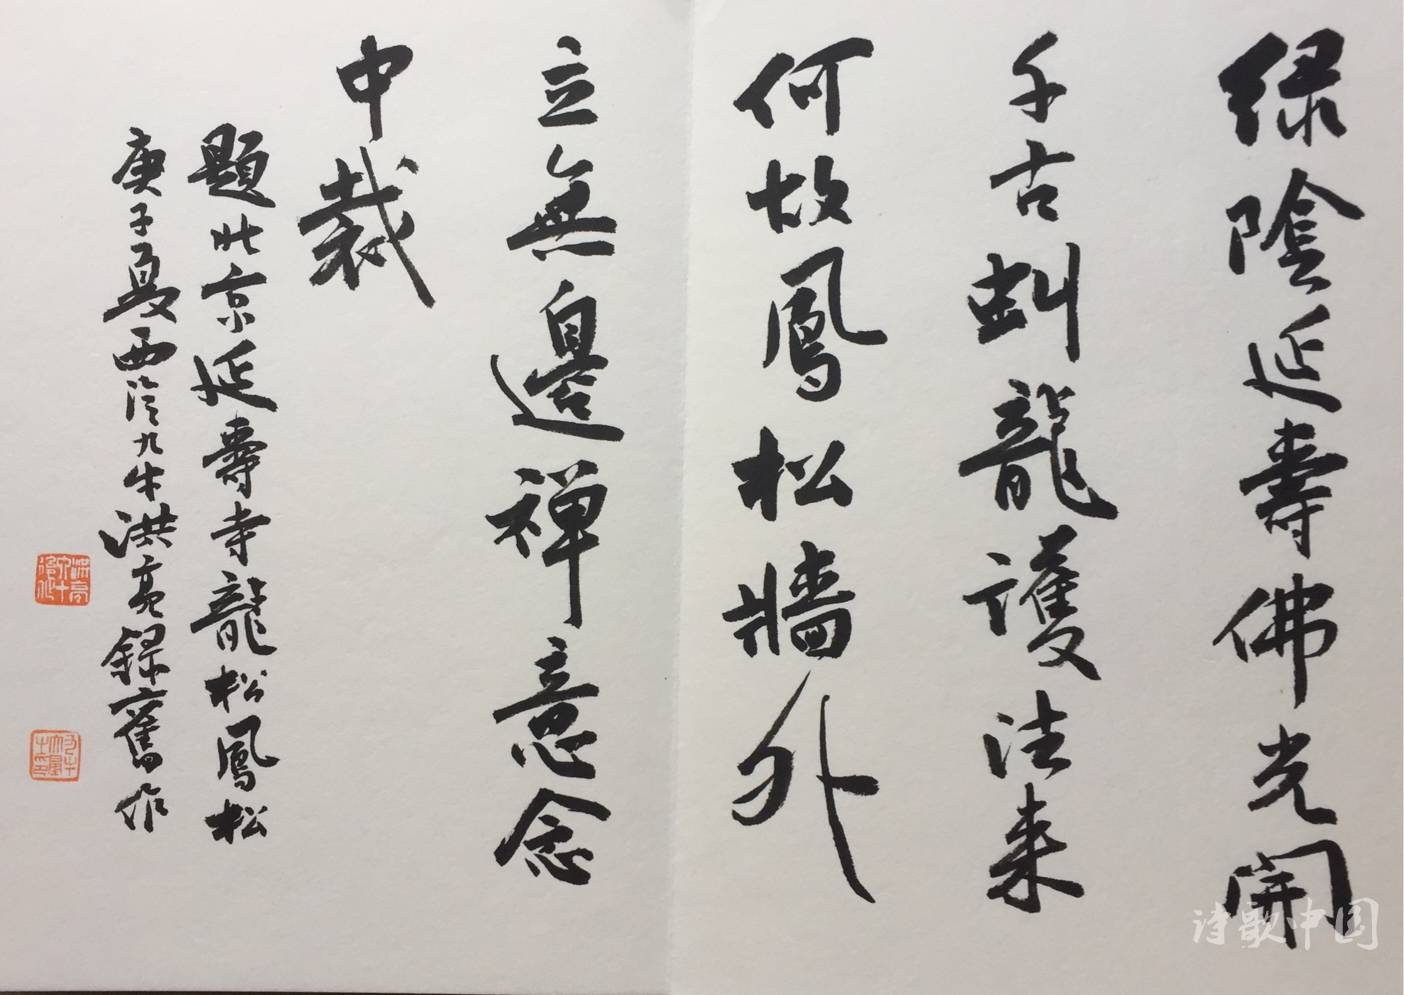 绿陰延壽佛光開
千古虬龍護法来
何故鳳松牆外
立無邊禅意念
中裁
題北京延壽寺龍松鳳松
庚子夏西泠九牛洪亮録舊作
诗歌中国